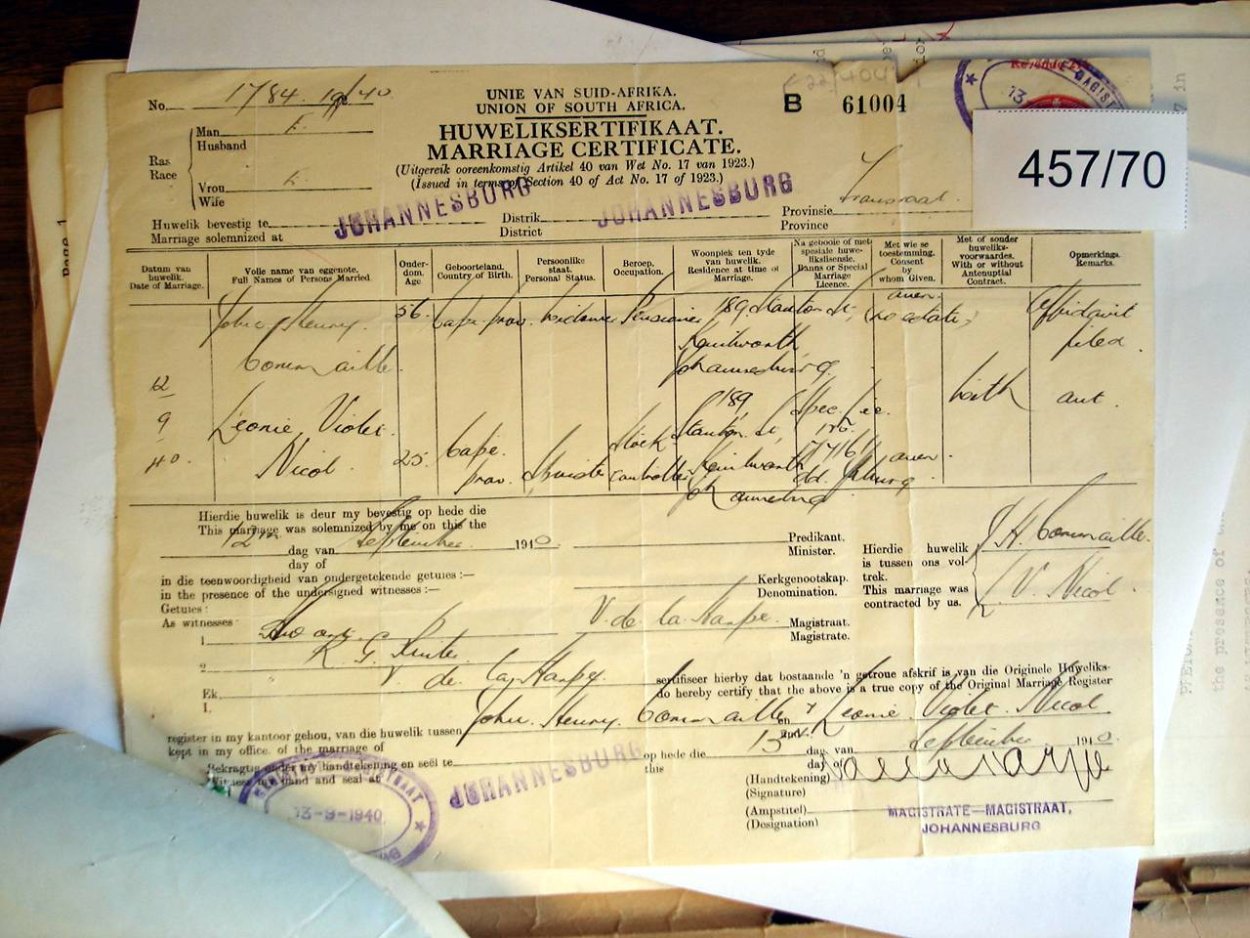 457/70
No. 1784. 1940
UNIE VAN SUID-AFRIKA.
UNION OF SOUTH AFRICA.
B 61004
HUWELIKSERTIFIKAAT.
MARRIAGE CERTIFICATE.
(Uitgereik ooreenkomstig Artikel 40 van Wet No. 17 van 1923.)
(Issued in terms of Section 40 of Act No. 17 of 1923.)
Ras
Race
Man E.
Husband
Vrou E.
Wife
Huwelik bevestig te
Marriage solemnized at
JOHANNESBURG
Distrik
District
JOHANNESBURG
Provinsie
Province
Transvaal.
Datum van huwelik. Date of Marriage.
Volle name van eggenote. Full Names of Persons Married.
Ouderdom. Age
Geboorteland. Country of Birth.
Persoonlike staat. Personal Status.
Beroep. Occupation.
Woonplek ten tyde van huwelik. Residence at time of Marriage.
Na gebooie of met spesiale huwelikslisensie. Banns or Special Marriage Licence.
Met wie se toestemming. Consent by whom Given.
Met of sonder huweliksvoorwaardes. With or without Antenuptial Contract.
Opmerkings. Remarks.
12
9
40.
John Henry
Commaille
56
Cape Prov.
Widower
Pensioner
189 Stanton St,
Kenilworth
Johannesburg
(no estate)
Affidavit
filed.
Leonie Violet
Nicol.
25
Cape
Prov.
Spinster
Stock
controller
189
Stanton St,
Kenilworth
Johannesburg
Spec. Lic.
No.
17416/
dd. Jhburg
with
ant.
Hierdie huwelik is deur my bevestig op hede die
This marriage was solemnized by me on this the
12th
dag van
day of
September
1940
Predikant.
Minister.
in die teenwoordigheid van ondergetekende getuies:—
in the presence of the undersigned witnesses:—
Kerkgenootskap.
Denomination.
Getuies:
As witnesses:
1
2
V. de la Harpe.
Magistraat.
Magistrate.
Hierdie huwelik is tussen ons voltrek.
This marriage was contracted by us.
J. H. Commaille.
V. Nicol
Ek,
I,
V. de la Harpe
sertifiseer hierby dat bostaande 'n getroue afskrif is van die Originele Huweliks-
do hereby certify that the above is a true copy of the Original Marriage Register
register in my kantoor gehou, van die huwelik tussen
kept in my office, of the marriage of
John Henry Commaille
en
and
Leonie Violet Nicol
Bekragtig onder my handtekening en seël te
JOHANNESBURG
op hede die
this
13
dag van
day of
September
1940.
(Handtekening)
(Signature)
(Ampstitel)
(Designation)
MAGISTRATE—MAGISTRAAT,
JOHANNESBURG
13-9-1940
Page 1
the presence of